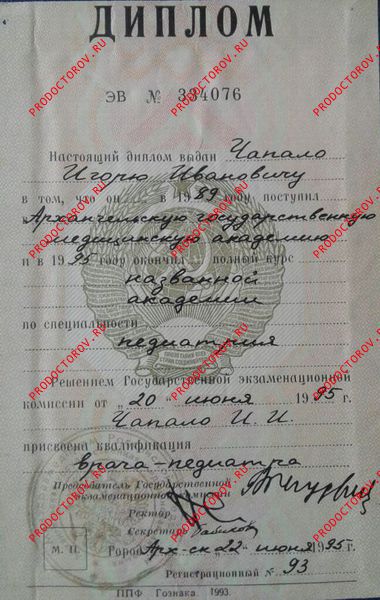 ДИПЛОМ
ЭВ № 334076
Настоящий диплом выдан Чапало
Игорю Ивановичу
в том, что он в 1989 году поступил
в Архангельскую государственную
медицинскую академию
и в 1995 году окончил полный курс
названной
академии
по специальности
педиатрия
Решением Государственной экзаменационной
комиссии от „20“ июня 1995 г.
Чапало И. И.
присвоена квалификация
врача-педиатра
Председатель Государственной
экзаменационной комиссии
Ректор
Секретарь
М. П.
Город Арх-ск „22“ июня 1995 г.
Регистрационный № 93
ППФ Гознака. 1993.
PRODOCTOROV.RU